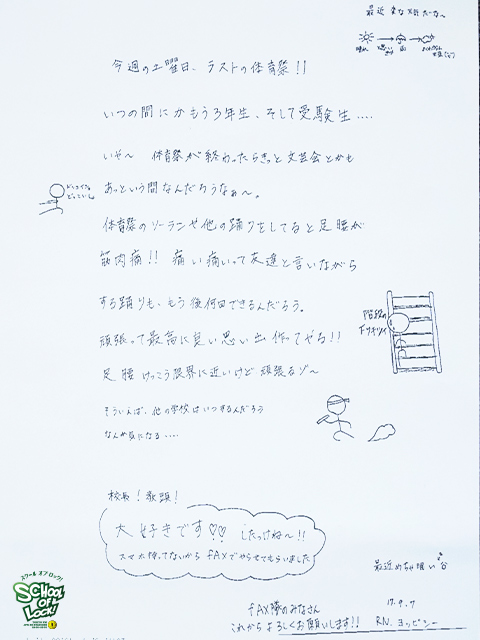 最近変な天気だな〜
晴れ
雨
今週の土曜日、ラストの体育祭!!
いつの間にかもう3年生、そして受験生....
いや〜 体育祭が終わったらきっと文芸会とかも
あっという間なんだろうなぁ〜。
どっこいしょ
どっこいしょ
体育祭のソーランや他の踊りをしてると足腰が
筋肉痛!! 痛い痛いって友達と言いながら
する踊りも、もう後何回できるんだろう。
階段の
上りキツイ
頑張って最高に良い思い出作ってやる!!
足腰けっこう限界に近いけど頑張るゾ〜
そういえば、他の学校はいつするんだろう
なんか気になる....
校長!教頭!
大好きです♡♡ したっけね〜!!
スマホ持ってないから FAXでやらせてもらいました
最近めちゃ眠い
スクール オブ ロック!
SCHOOL OF LOCK!
FAX隊のみなさん
これからよろしくお願いします!!
17.9.7
RN. ヨッピー